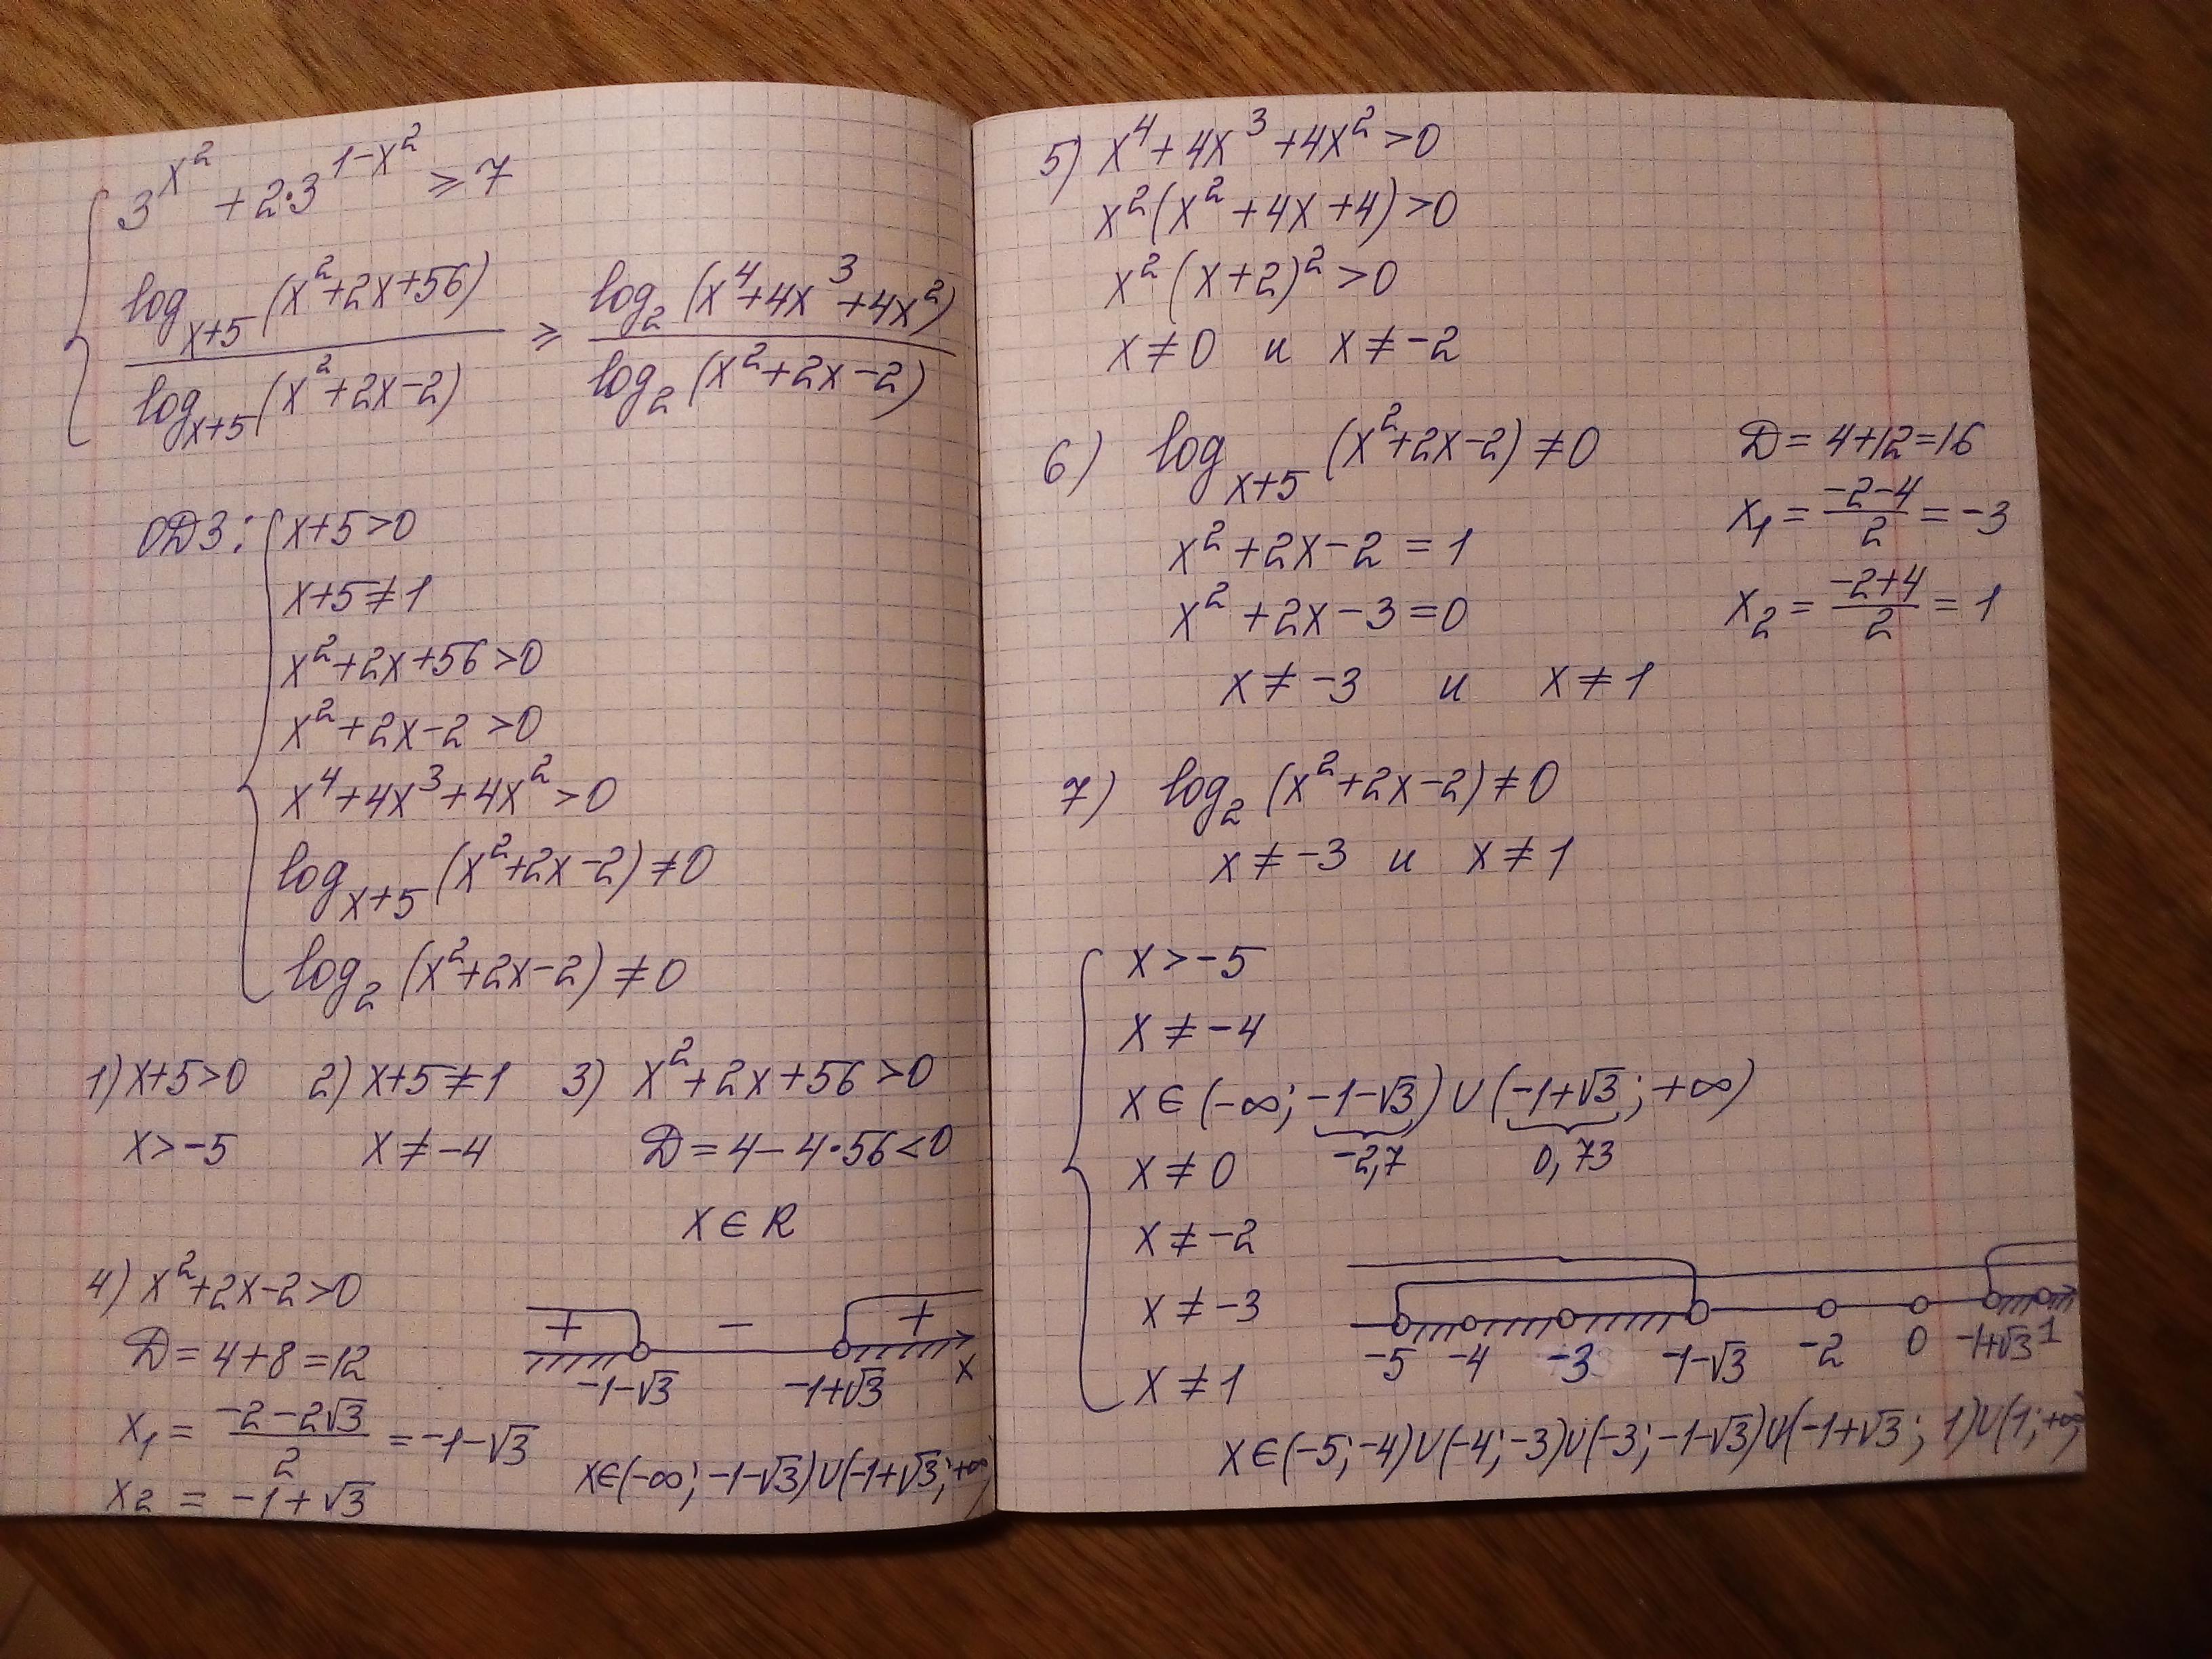 3^{x^2} + 2·3^{1-x^2} ⩾ 7
log_{x+5}(x^2+2x+56) / log_{x+5}(x^2+2x-2) ⩾ log_2(x^4+4x^3+4x^2) / log_2(x^2+2x-2)
ОДЗ: x+5>0
x+5≠1
x^2+2x+56>0
x^2+2x-2>0
x^4+4x^3+4x^2>0
log_{x+5}(x^2+2x-2)≠0
log_2(x^2+2x-2)≠0
1) x+5>0 2) x+5≠1 3) x^2+2x+56>0
x>-5 x≠-4 Д=4-4·56<0
x∈R
4) x^2+2x-2>0
Д=4+8=12
x_1 = (-2-2√3)/2 = -1-√3
x_2 = -1+√3
+ − +
-1-√3 -1+√3 x
x∈(-∞;-1-√3)∪(-1+√3;+∞)
5) x^4+4x^3+4x^2>0
x^2(x^2+4x+4)>0
x^2(x+2)^2>0
x≠0 и x≠-2
6) log_{x+5}(x^2+2x-2)≠0
x^2+2x-2=1
x^2+2x-3=0
x≠-3 и x≠1
Д=4+12=16
x_1 = (-2-4)/2 = -3
x_2 = (-2+4)/2 = 1
7) log_2(x^2+2x-2)≠0
x≠-3 и x≠1
x>-5
x≠-4
x∈(-∞;-1-√3)∪(-1+√3;+∞)
-2,7 0,73
x≠0
x≠-2
x≠-3
x≠1
-5 -4 -3 -1-√3 -2 0 -1+√3 1
x∈(-5;-4)∪(-4;-3)∪(-3;-1-√3)∪(-1+√3;1)∪(1;+∞)